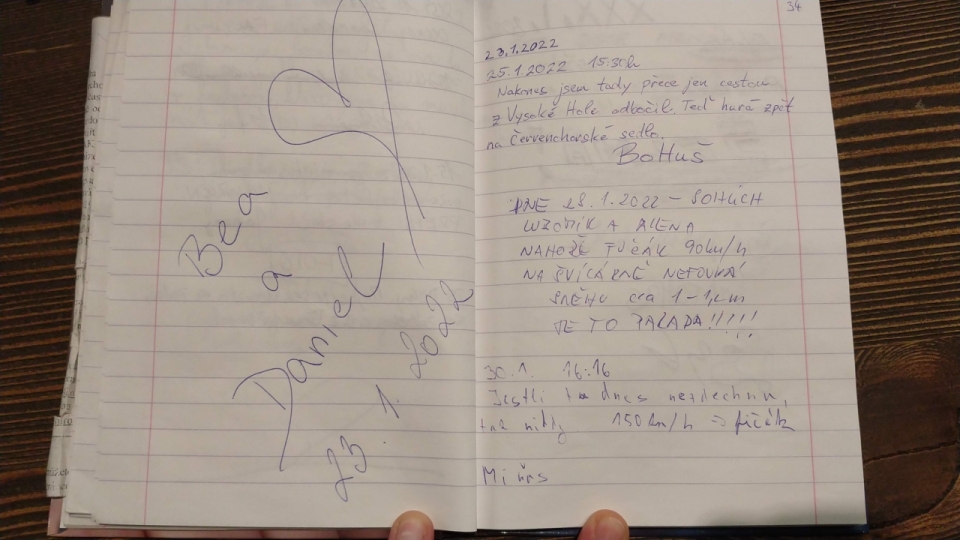 Bea
a
Daniel
23. 1. 2022
34
23.1.2022
25.1.2022 15:30h
Nakonec jsem tady přece jen cestou
z Vysoké Hole odbočil. Teď hurá zpět
na Červenohorské sedlo.
BoHuš
DNE 28.1.2022 -
A ALENA
NAHOŘE 90km/h
NA ŠVÝCÁRNĚ NEFOUKÁ
SNĚHU cca 1-1,
JE TO PARÁDA!!!!!
30.1. 16:16
Jestli to dnes nezdechnu,
tak nikdy 150 km/h → fičák